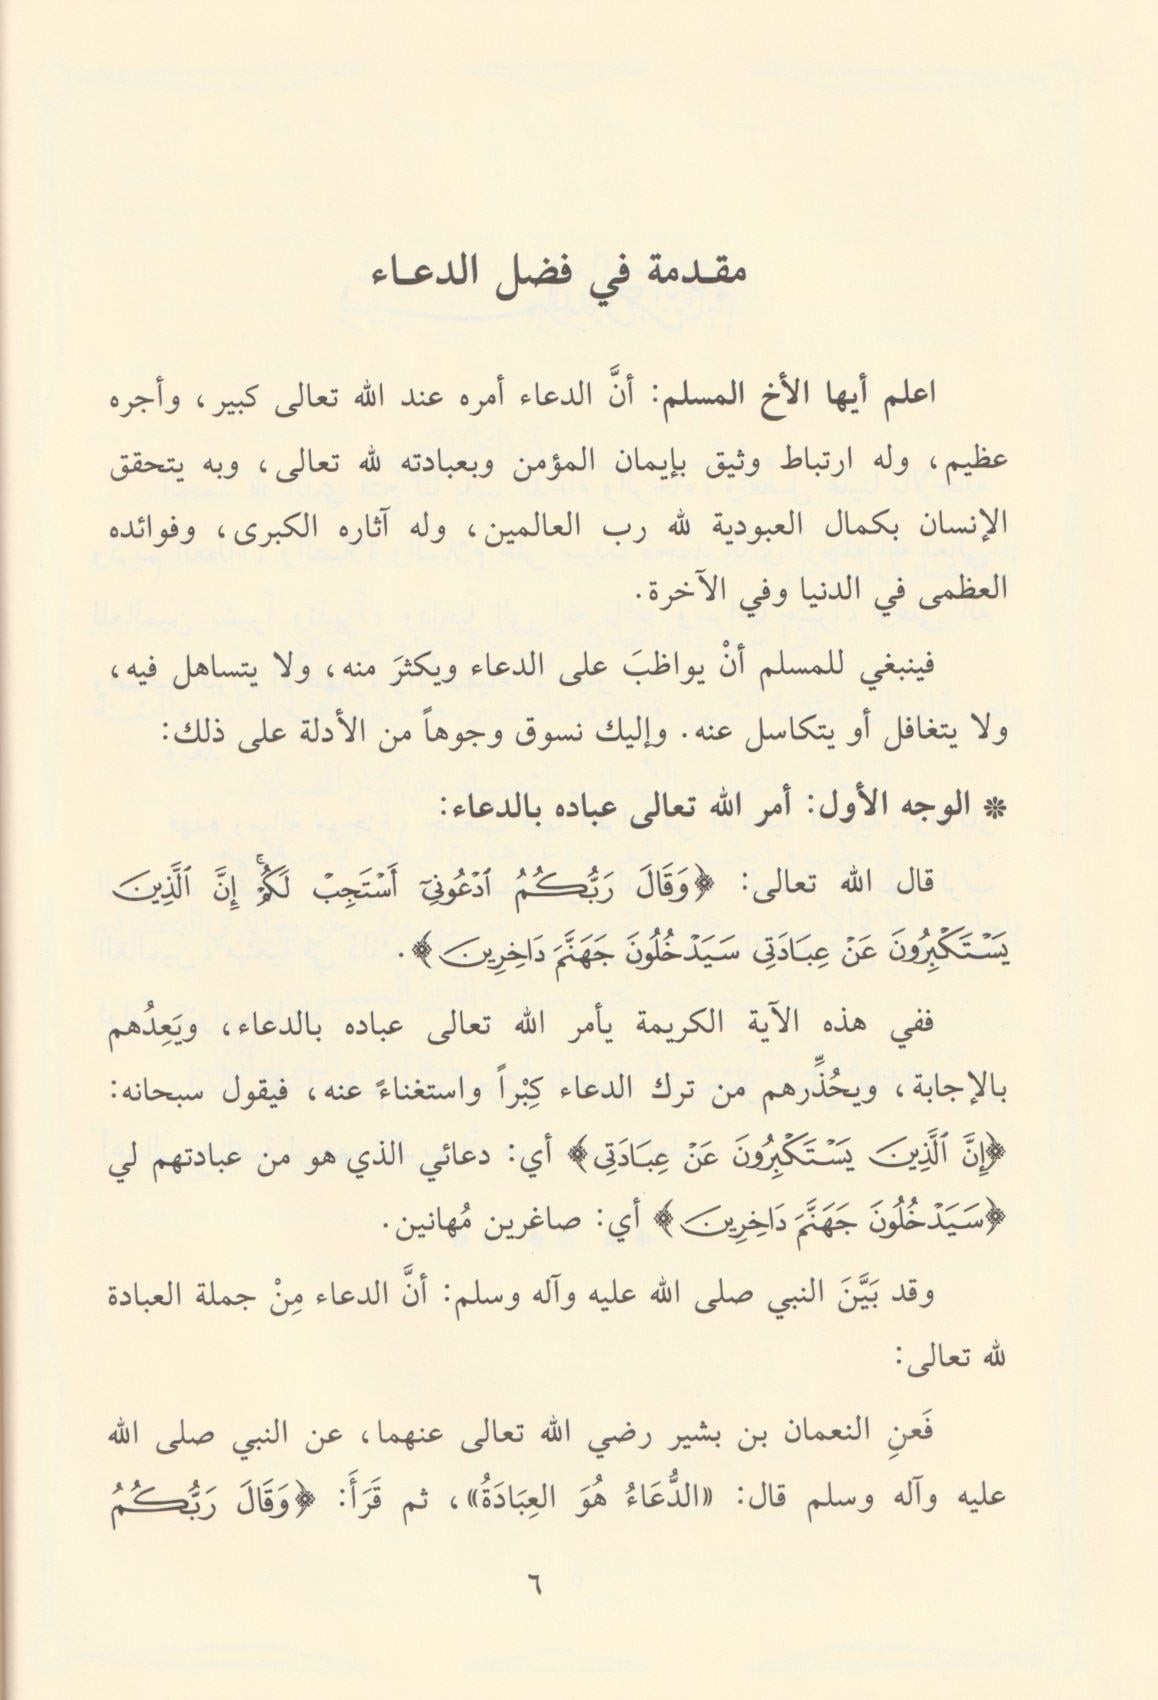 مقدمة في فضل الدعاء
اعلم أيها الأخ المسلم: أنَّ الدعاء أمره عند الله تعالى كبير، وأجره
عظيم، وله ارتباط وثيق بإيمان المؤمن وبعبادته لله تعالى، وبه يتحقق
الإنسان بكمال العبودية لله رب العالمين، وله آثاره الكبرى، وفوائده
العظمى في الدنيا وفي الآخرة.
فينبغي للمسلم أنْ يواظبَ على الدعاء ويكثرَ منه، ولا يتساهل فيه،
ولا يتغافل أو يتكاسل عنه. وإليك نسوق وجوهاً من الأدلة على ذلك:
❊ الوجه الأول: أمر الله تعالى عباده بالدعاء:
قال الله تعالى: ﴿وَقَالَ رَبُّكُمُ ٱدْعُونِىٓ أَسْتَجِبْ لَكُمْۚ إِنَّ ٱلَّذِينَ
يَسْتَكْبِرُونَ عَنْ عِبَادَتِى سَيَدْخُلُونَ جَهَنَّمَ دَاخِرِينَ﴾.
ففي هذه الآية الكريمة يأمر الله تعالى عباده بالدعاء، ويَعِدُهم
بالإجابة، ويحُذِّرهم من ترك الدعاء كِبْراً واستغناءً عنه، فيقول سبحانه:
﴿إِنَّ ٱلَّذِينَ يَسْتَكْبِرُونَ عَنْ عِبَادَتِى﴾ أي: دعائي الذي هو من عبادتهم لي
﴿سَيَدْخُلُونَ جَهَنَّمَ دَاخِرِينَ﴾ أي: صاغرين مُهانين.
وقد بَيَّنَ النبي صلى الله عليه وآله وسلم: أنَّ الدعاء مِنْ جملة العبادة
لله تعالى:
فَعنِ النعمان بن بشير رضي الله تعالى عنهما، عن النبي صلى الله
عليه وآله وسلم قال: «الدُّعَاءُ هُوَ العِبَادَةُ»، ثم قَرَأَ: ﴿وَقَالَ رَبُّكُمُ
٦